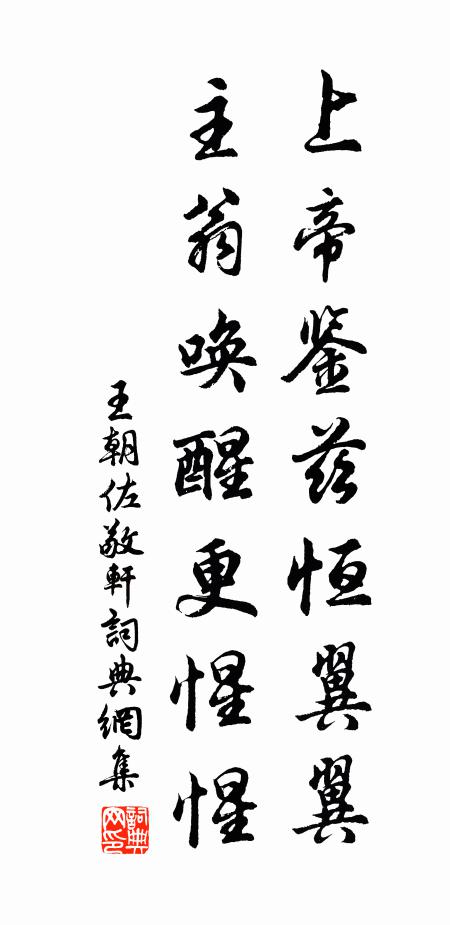 上帝鉴兹恒翼翼
主翁唤醒更惺惺
王朝佐敬軒詞典網集
詞典網印